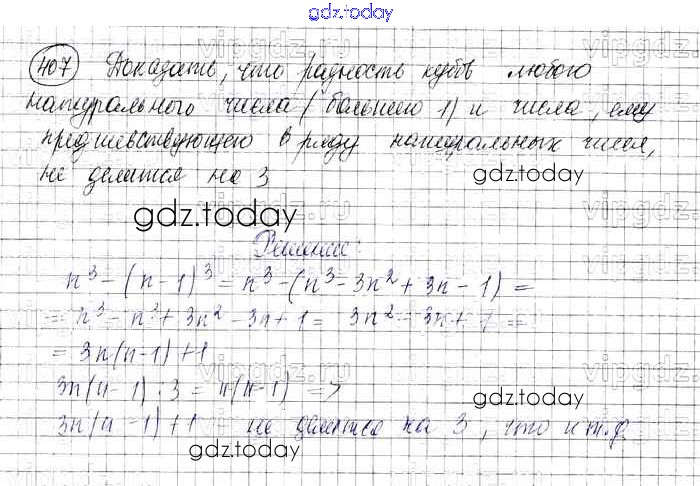 gdz.today
407 Доказать, что разность кубов любого
натурального числа (большего 1) и числа, ему
предшествующего в ряду натуральных чисел,
не делится на 3
gdz.today
gdz.today
Решение:
n³ - (n - 1)³ = n³ - (n³ - 3n² + 3n - 1) =
= n³ - n³ + 3n² - 3n + 1 = 3n² - 3n + 1 =
= 3n(n - 1) + 1
3n(n - 1) : 3 = n(n - 1) =>
gdz.today
3n(n - 1) + 1 не делится на 3, что и т.д.
gdz.today
vipgdz.ru